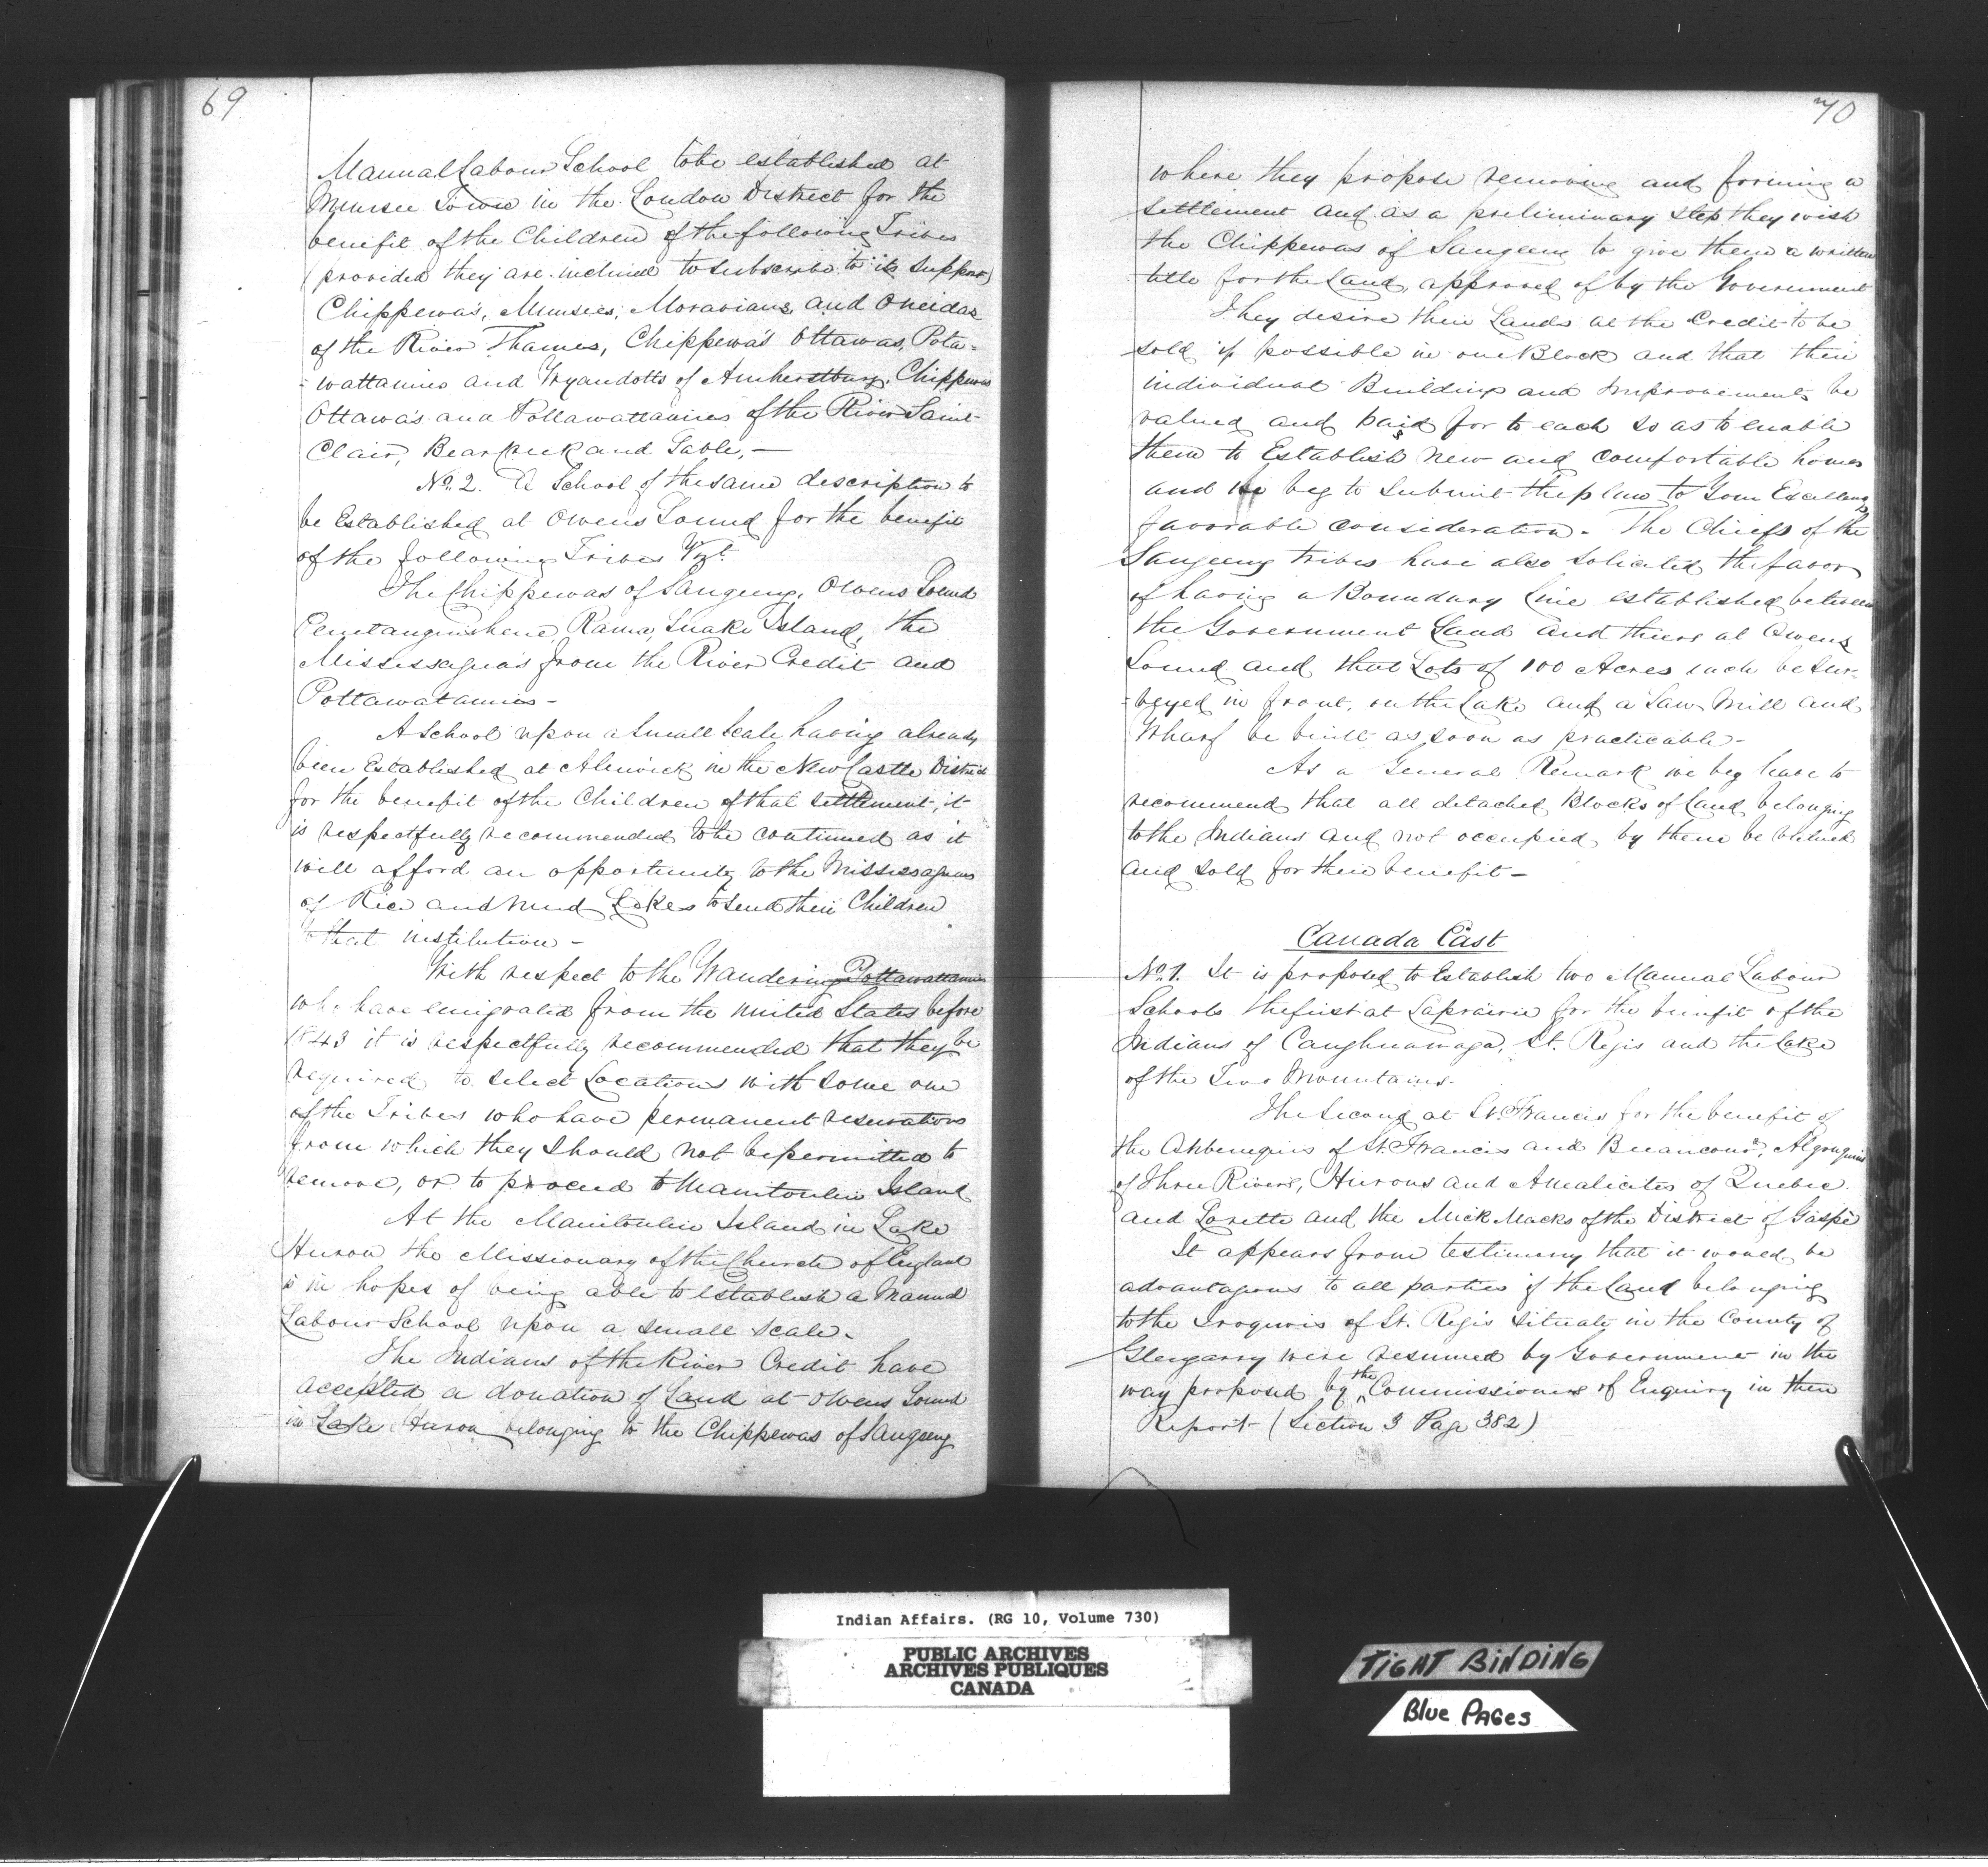 69
Manual Labour School to be established at
Munsee Town in the London District for the
benefit of the Children of the following Tribes
(provided they are inclined to subscribe to its support)
Chippewa's, Munsees, Moravians and Oneidas
of the River Thames, Chippewa's Ottawas, Pota-
-wattamies and Wyandotts of Amherstburg, Chippewas
Ottawa's and Pottawattamies of the River Saint
Clair, Bear Creek and Sable, —
No. 2. A School of the same description to
be Established at Owens Sound for the benefit
of the following Tribes Vizt.
The Chippewas of Saugeeng, Owens Sound
Penetanguishene, Rama, Snake Island, the
Mississagua's from the River Credit and
Pottawatamies -
A School upon a small scale having already
been Established at Alnwick in the New Castle District
for the benefit of the Children of that settlement, it
is respectfully recommended to be continued as it
will afford an opportunity to the Missisaguas
of Rice and Mud Lakes to send their Children
to that institution -
With respect to the Wandering Pottawattamies
who have emigrated from the United States before
1843 it is respectfully recommended that they be
required to select Locations with some one
of the Tribes who have permanent reservations
from which they should not be permitted to
remove, or to proceed to Manitoulin Island
At the Manitoulin Island in Lake
Huron the Missionary of the Church of England
is in hopes of being able to establish a Manual
Labour School upon a small scale.
The Indians of the River Credit have
accepted a donation of Land at Owens Sound
in Lake Huron belonging to the Chippewas of Saugeeng
70
where they propose removing and forming a
settlement and as a preliminary step they wish
the Chippewas of Saugeeng to give them a written
title for the Land, approved of by the Government
They desire their Lands at the Credit to be
sold if possible in one Block and that their
individual Buildings and Improvements be
valued and paid for to each so as to enable
them to Establish new and comfortable homes
and we beg to submit the plan to Your Excellency's
favorable consideration. The Chiefs of the
Saugeeng tribes have also solicited the favor
of having a Boundary line established between
the Government Land and theirs at Owens
Sound and that Lots of 100 Acres each be sur-
-veyed in front, on the Lake and a Saw Mill and
Wharf be built as soon as practicable -
As a General Remark we beg leave to
recommend that all detached Blocks of Land belonging
to the Indians and not occupied by them be valued
and sold for their benefit -
Canada East
No. 1. It is proposed to Establish two Manual Labour
Schools the first at Laprairie for the benefit of the
Indians of Caughnawaga, St. Regis and the Lake
of the Two Mountains.
The Second at St. Francis for the benefit of
the Abbenequis of St. Francis and Becancour, Algonquins
of Three Rivers, Hurons and Amalicites of Quebec
and Lorette and the Mick Macks of the District of Gaspè
It appears from testimony that it would be
advantageous to all parties if the Land belonging
to the Iroquois of St. Regis situate in the County of
Glengarry were resumed by Government in the
way proposed by the Commissioners of Enquiry in their
Report (Section 3 Page 382)
Indian Affairs. (RG 10, Volume 730)
PUBLIC ARCHIVES
ARCHIVES PUBLIQUES
CANADA
TIGHT BINDING
Blue PAGes